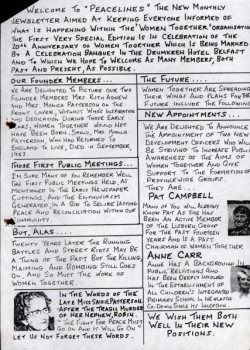 WELCOME TO "PEACELINES" THE NEW MONTHLY
NEWSLETTER AIMED AT KEEPING EVERYONE INFORMED OF
WHAT IS HAPPENING WITHIN THE "WOMEN TOGETHER" ORGANISATION
THE FIRST VERY SPECIAL EDITION IS IN CELEBRATION OF THE
20TH ANNIVERSARY OF WOMEN TOGETHER WHICH IS BEING MARKED
BY A CELEBRATION BANQUET IN THE DRUMKEEN HOTEL BELFAST
AND TO WHICH WE HOPE TO WELCOME AS MANY MEMBERS, BOTH
PAST AND PRESENT, AS POSSIBLE.
OUR FOUNDER MEMBERS...
WE ARE DELIGHTED TO PICTURE OUR TWO
FOUNDER MEMBERS MRS RUTH AGNEW
AND MRS MONICA PATTERSON ON THE
FRONT COVER, WITHOUT WHOSE INSPIRATION
AND DEDICATION DURING THOSE EARLY
YEARS, WOMEN TOGETHER WOULD NOT
HAVE BEEN BORN. SADLY, MRS
PATTERSON, WHO HAD RETURNED TO
ENGLAND TO LIVE, DIED IN SEPTEMBER
THOSE FIRST PUBLIC MEETINGS...
I'M SURE MANY OF YOU REMEMBER WELL
THE FIRST PUBLIC MEETINGS HELD, AS
MENTIONED IN THE EARLY NEWSPAPER
CUTTINGS, AND THE ENTHUSIASM
GENERATED IN A BID TO SECURE LASTING
PEACE AND RECONCILIATION WITHIN OUR
COMMUNITY.
BUT, ALAS....
TWENTY YEARS LATER THE RUNNING
BATTLES AND STREET RIOTS MAY BE
A THING OF THE PAST BUT THE KILLING,
MAIMING AND BOMBING STILL GOES
ON, AND SO MUST THE WORK OF
WOMEN TOGETHER.
IN THE WORDS OF THE
LATE MISS SAIDIE PATTERSON
AFTER THE TRAGIC MURDER
OF HER NEPHEW, ROBIN
"THE FIGHT FOR PEACE MUST
GO ON AND IT WILL GO ON"
LET US NOT FORGET THESE WORDS.
THE FUTURE....
WOMEN TOGETHER ARE SPREADING
THEIR WINGS AND PLANS FOR THE
FUTURE INCLUDE THE FOLLOWING
NEW APPOINTMENTS....
WE ARE DELIGHTED TO ANNOUNCE
THE APPOINTMENT OF TWO NEW
DEVELOPMENT OFFICERS WHO WILL
BE STRIVING TO INCREASE PUBLIC
AWARENESS OF THE AIMS OF
WOMEN TOGETHER AND GIVE
SUPPORT TO THE FORMATION OF
PROVINCEWIDE GROUPS.
THEY ARE...
PAT CAMPBELL
MANY OF YOU WILL ALREADY
KNOW PAT AS SHE HAS
BEEN AN ACTIVE MEMBER
OF THE LISBURN GROUP
FOR THE PAST FOURTEEN
YEARS AND IS A PAST
CHAIRMAN OF WOMEN TOGETHER
ANNE CARR
ANNE HAS A BACKGROUND IN
PUBLIC RELATIONS AND
HAS BEEN DEEPLY INVOLVED
IN THE ESTABLISHMENT OF
ALL CHILDREN'S INTEGRATED
PRIMARY SCHOOL IN NEWCASTLE
CO. DOWN SINCE ITS INCEPTION
WE WISH THEM BOTH
WELL IN THEIR NEW
POSITIONS.